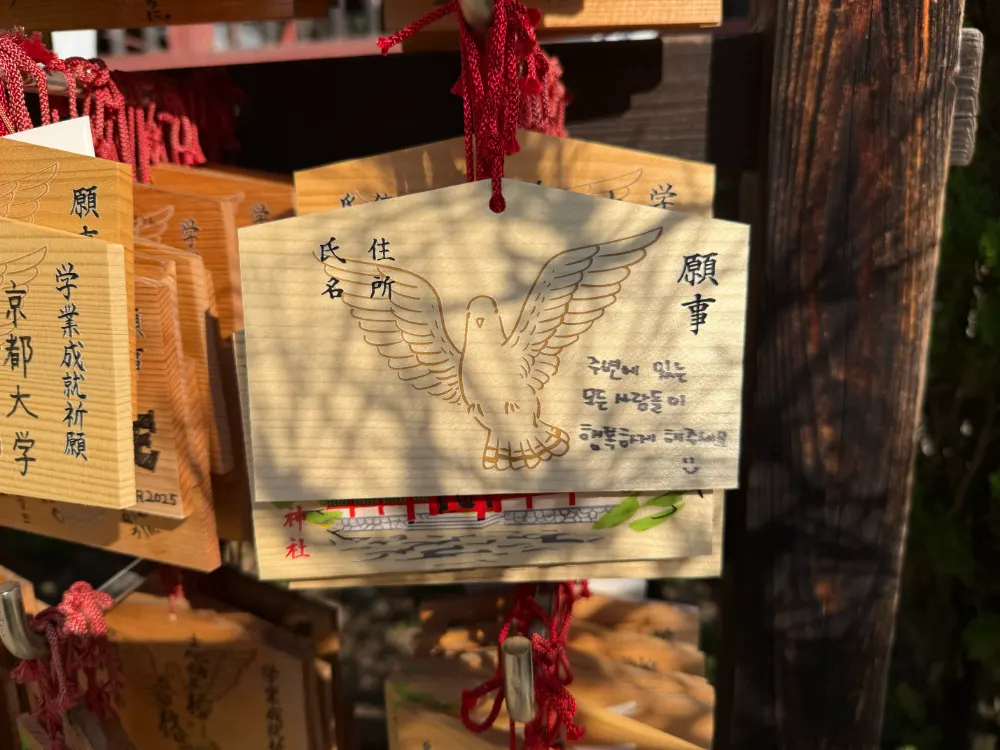 願事
住所
氏名
주변에 있는
모든 사람들이
행복하게 해주세요
神社
願
学業成就祈願
京都大学
学
学
R2025